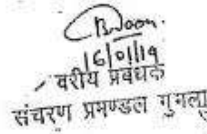 16/01/19
वरीय प्रबंधक
संचरण प्रमण्डल गुमला